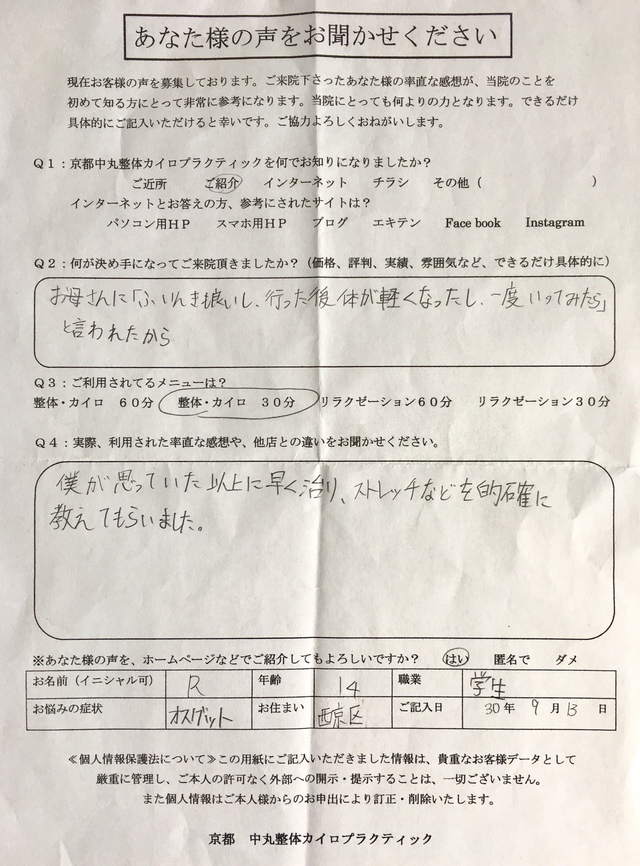 あなた様の声をお聞かせください
現在お客様の声を募集しております。ご来院下さったあなた様の率直な感想が、当院のことを
初めて知る方にとって非常に参考になります。当院にとっても何よりの力となります。できるだけ
具体的にご記入いただけると幸いです。ご協力よろしくおねがいします。
Q1：京都中丸整体カイロプラクティックを何でお知りになりましたか？
ご近所 ご紹介 インターネット チラシ その他（ ）
インターネットとお答えの方、参考にされたサイトは？
パソコン用HP スマホ用HP ブログ エキテン Face book Instagram
Q2：何が決め手になってご来院頂きましたか？（価格、評判、実績、雰囲気など、できるだけ具体的に）
お母さんに「ふいんきも良いし、行った後体が軽くなったし、一度いってみたら」
と言われたから
Q3：ご利用されてるメニューは？
整体・カイロ 60分 整体・カイロ 30分 リラクゼーション60分 リラクゼーション30分
Q4：実際、利用された率直な感想や、他店との違いをお聞かせください。
僕が思っていた以上に早く治り、ストレッチなどを的確に
教えてもらいました。
※あなた様の声を、ホームページなどでご紹介してもよろしいですか？ はい 匿名で ダメ
お名前（イニシャル可） R 年齢 14 職業 学生
お悩みの症状 オスグット お住まい 西京区 ご記入日 30年 9月13日
≪個人情報保護法について≫この用紙にご記入いただきました情報は、貴重なお客様データとして
厳重に管理し、ご本人の許可なく外部への開示・提示することは、一切ございません。
また個人情報はご本人様からのお申出により訂正・削除いたします。
京都 中丸整体カイロプラクティック